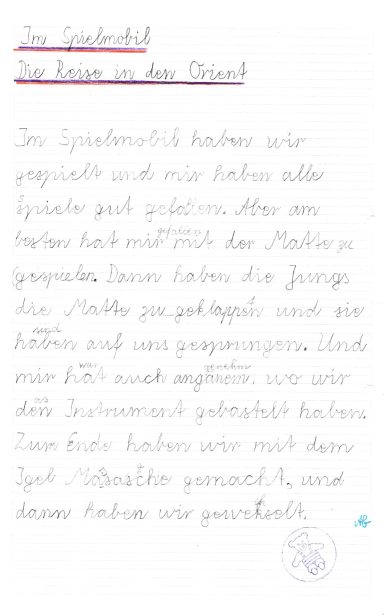 Im Spielmobil
Die Reise in den Orient
Im Spielmobil haben wir
gespielt und mir haben alle
spiele gut gefallen. Aber am
gefallen
besten hat mir mit der Matte zu
gespielen. Dann haben die Jungs
die Matte zu geklappt und sie
und
haben auf uns gesprungen. Und
war genehm
mir hat auch anganem, wo wir
as
den Instrument gebastelt haben.
Zum Ende haben wir mit dem
Igel Masasche gemacht, und
dann haben wir gewekselt.